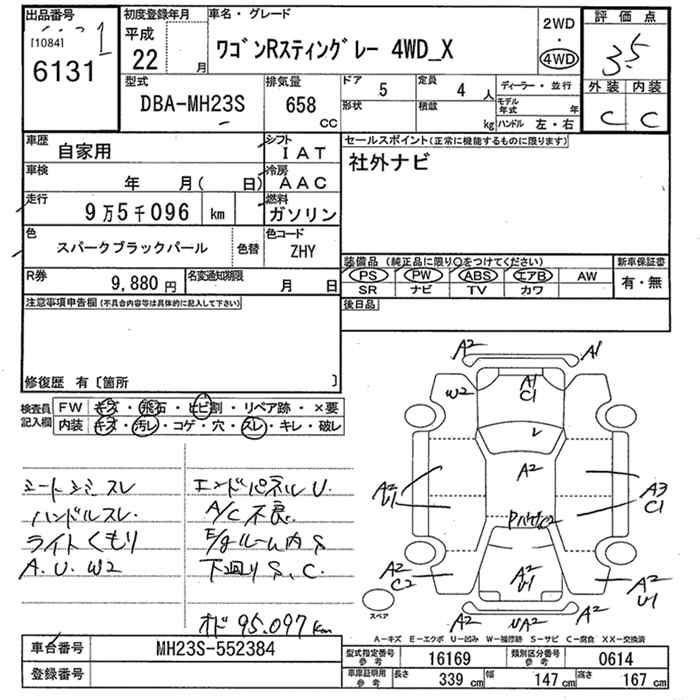 出品番号
[1084] 1
6131
初度登録年月
平成
22 月
車名・グレード
ワゴンRスティングレー 4WD_X
2WD
・
4WD
評価点
3.5
外装 内装
C C
型式
DBA-MH23S
排気量
658
CC
ドア
5
定員
4 人
形状
積載
kg
ディーラー・並行
モデル年式 年
ハンドル 左・右
車歴
自家用
シフト
IAT
車検
年 月( 日)
冷房
AAC
走行
9万5千096 km
燃料
ガソリン
色
スパークブラックパール
色替
色コード
ZHY
R券
9,880 円
名変通知期限
月 日
セールスポイント(正常に機能するものに限ります)
社外ナビ
装備品(純正品に限り○をつけてください)
PS PW ABS エアB AW
SR ナビ TV カワ
新車保証書
有・無
後日品
注意事項申告欄(不具合内容等は具体的に記入して下さい)
修復歴 有〔箇所 〕
検査員
記入欄
FW キズ・飛石・ヒビ割・リペア跡・×要
内装 キズ・汚レ・コゲ・穴・スレ・キレ・破レ
シートシミ スレ
ハンドルスレ
ライトくもり
A.U.W2
エンドパネルU.
A/C不良
E/gルーム内S
下廻りS.C.
オド95.097km
A2 A1
W2
A1
C1
A2
A2
U1
A3
C1
A2
C2
A2
U1
A2
U1
A2
スペア
A2
A-キズ E-エクボ U-凹み W-補修跡 S-サビ C-腐食 XX-交換済
車台番号
MH23S-552384
登録番号
型式指定番号
参考
16169
類別区分番号
参考
0614
車庫証明用
参考
長さ
339 cm
幅
147 cm
高さ
167 cm